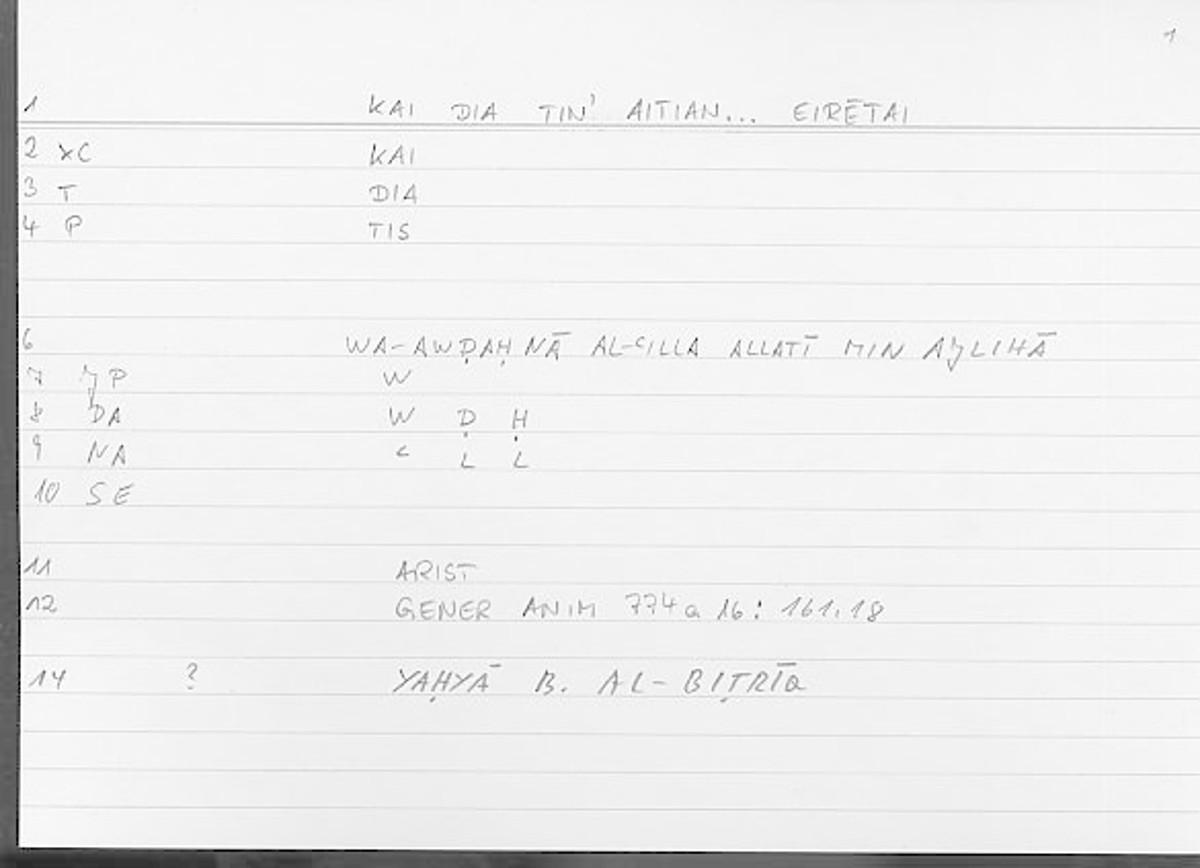 1
1 KAI DIA TIN' AITIAN... EIRĒTAI
2 XC KAI
3 T DIA
4 P TIS
6 WA-AWḌAḤNĀ AL-ʿILLA ALLATĪ MIN AǦLIHĀ
7 ǦP W
8 DA W Ḍ Ḥ
9 NA ʿ L L
10 SE
11 ARIST
12 GENER ANIM 774a 16: 161.18
14 ? YAḤYĀ B. AL-BIṬRĪQ